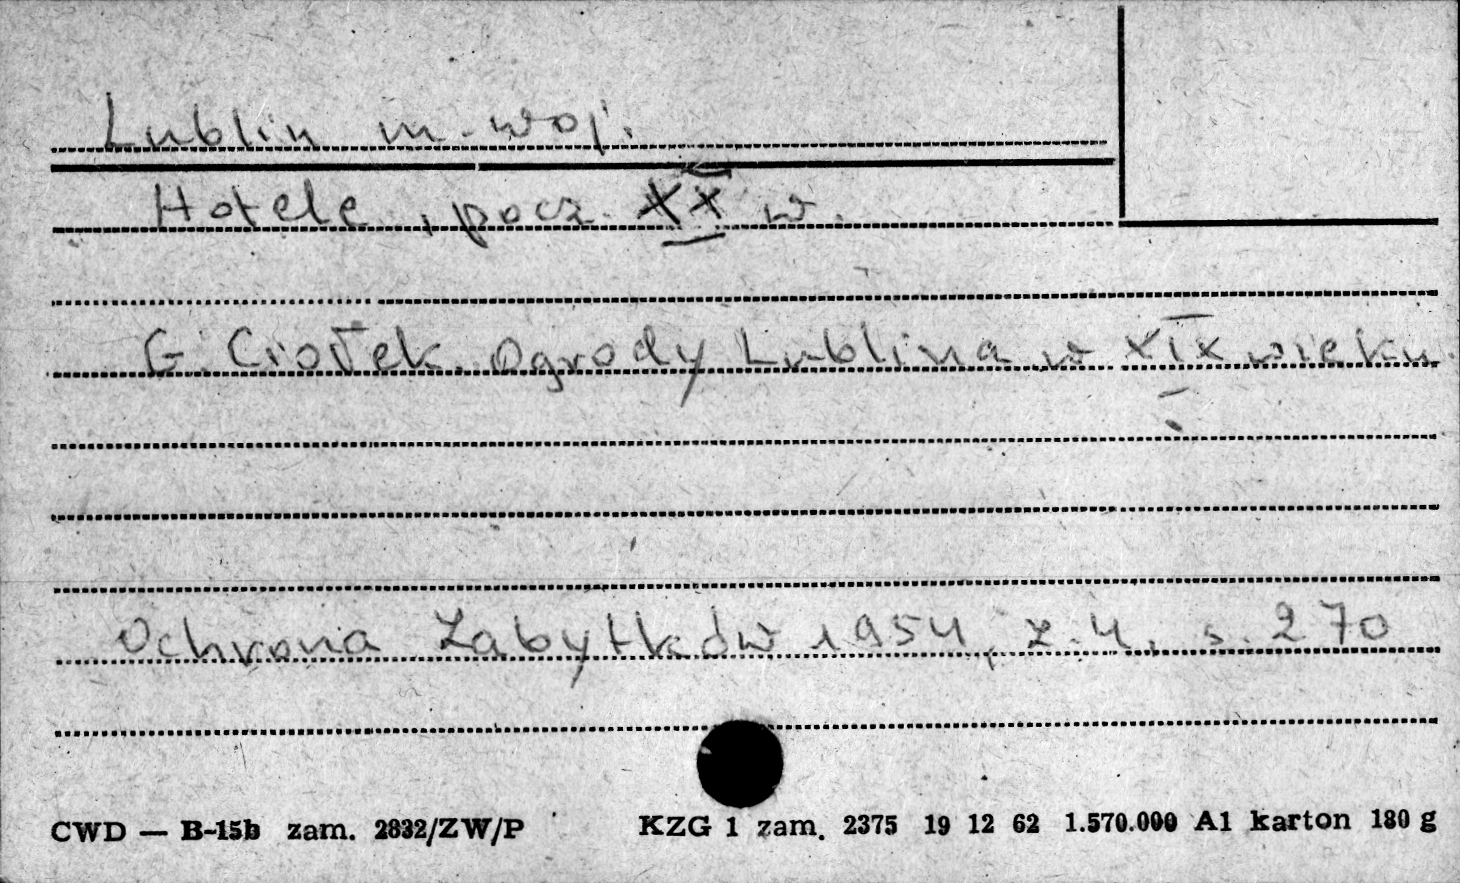 Lublin m. woj.
Hotele, pocz. XX w.
G. Ciołek. Ogrody Lublina w XIX wieku.
Ochrona Zabytków 1954, z. 4, s. 270
CWD — B-15b zam. 2832/ZW/P KZG 1 zam. 2375 19 12 62 1.570.000 A1 karton 180 g